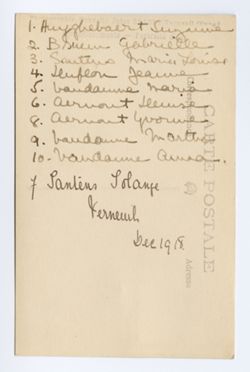 1. Huyghebaert Suzanne
2. Gabrielle
3. Santens Marie Louise
4. Jeanne
5 Vandamme Maria
6 Aernout Denise
8. Aernout Yvonne
9. Vandamme Martha
10. Vandamme Anna.
7 Santens Solange
Verneuil
Dec 1918.
CARTE POSTALE
Adresse